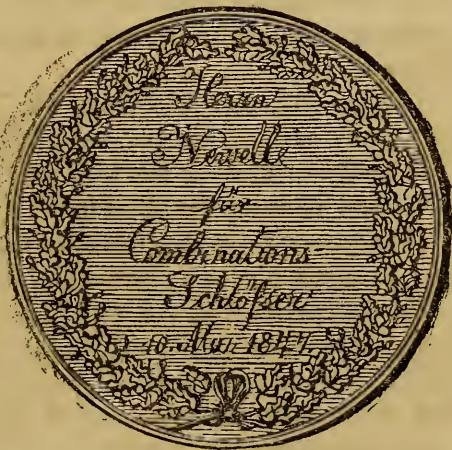 Herrn
Newelle
für
Combinations-
Schlößer
10. Mai 1847